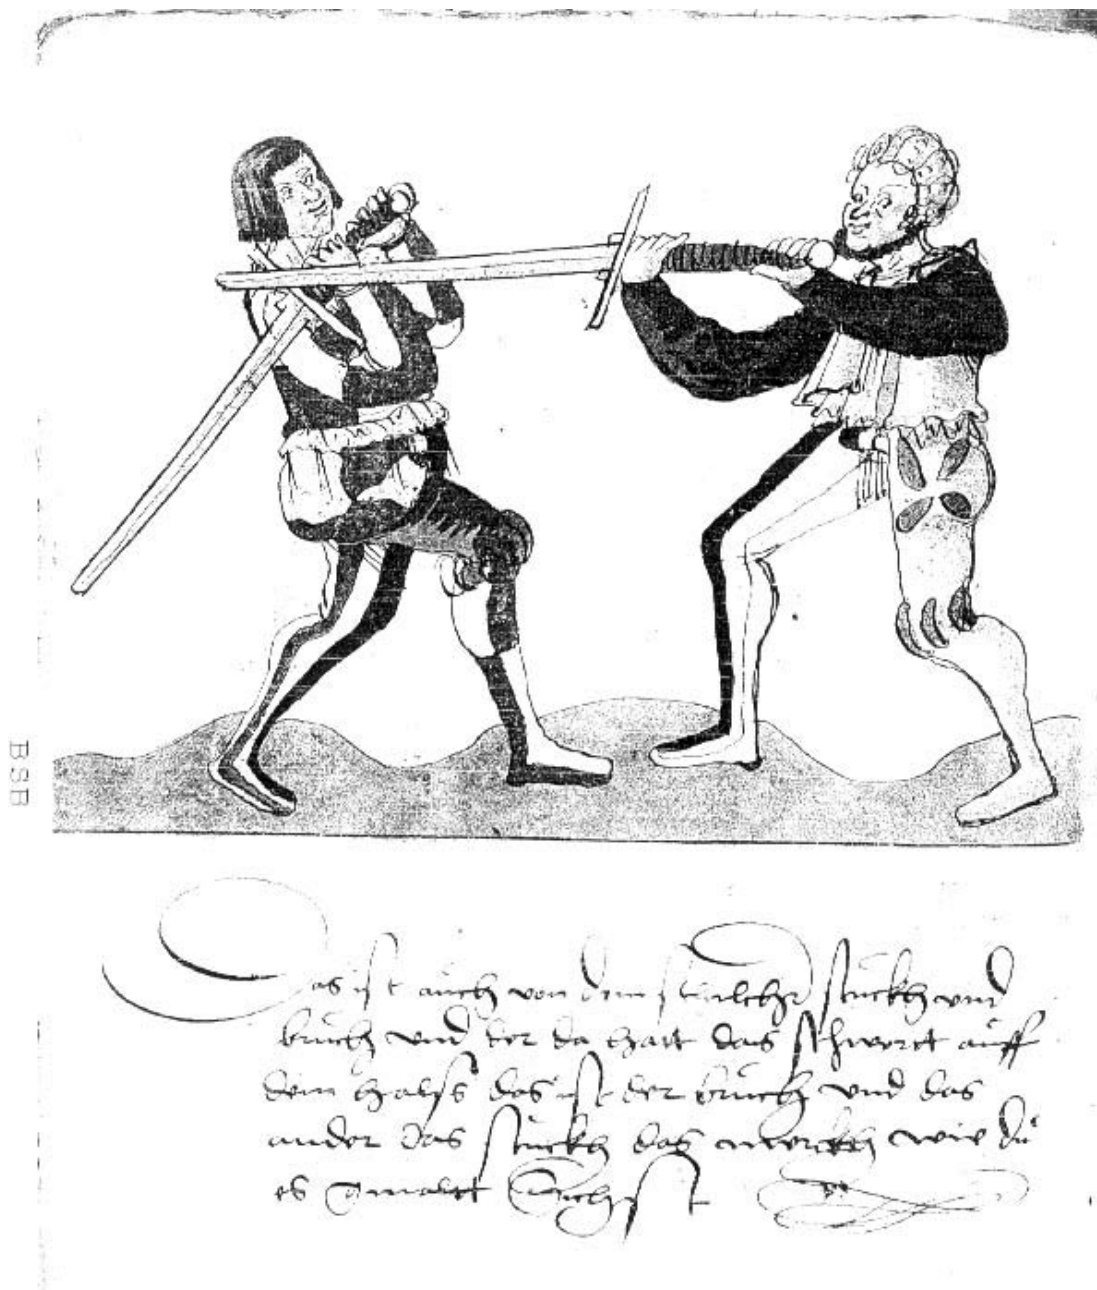 BSB
Das ist auch von dem stuckh vnd
bruch vnd der da hatt das schwertt auff
dem halss das ist der bruch vnd das
ander das stuckh das merckh wie du
es gmaltt sichst